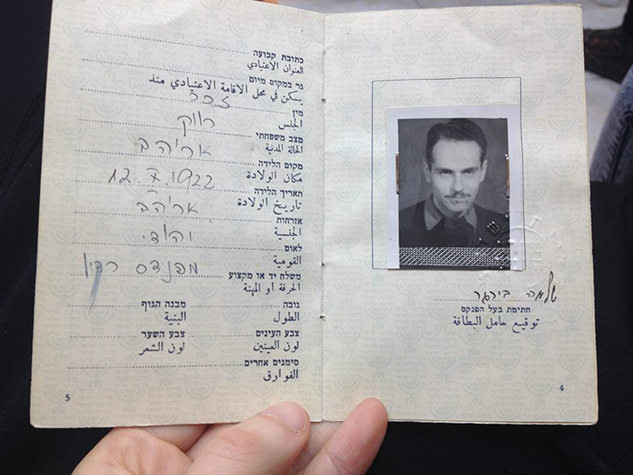 שלמה בירגר
חתימת בעל הפנקס
توقيع حامل البطاقة
4
כתובת קבועה
العنوان الاعتيادي
גר במקום מיום
يسكن في محل الاقامة الاعتيادي منذ
זכר
מין
الجنس
רווק
מצב משפחתי
الحالة المدنية
ארה"ב
מקום הלידה
مكان الولادة
12.7.1922
תאריך הלידה
تاريخ الولادة
ארה"ב
אזרחות
الجنسية
יהודי
לאום
القومية
מהנדס
משלח יד או מקצוע
الحرفة او المهنة
גובה מבנה הגוף
الطول البنية
צבע העינים צבע השער
لون العينين لون الشعر
סימנים אחרים
الفوارق
5